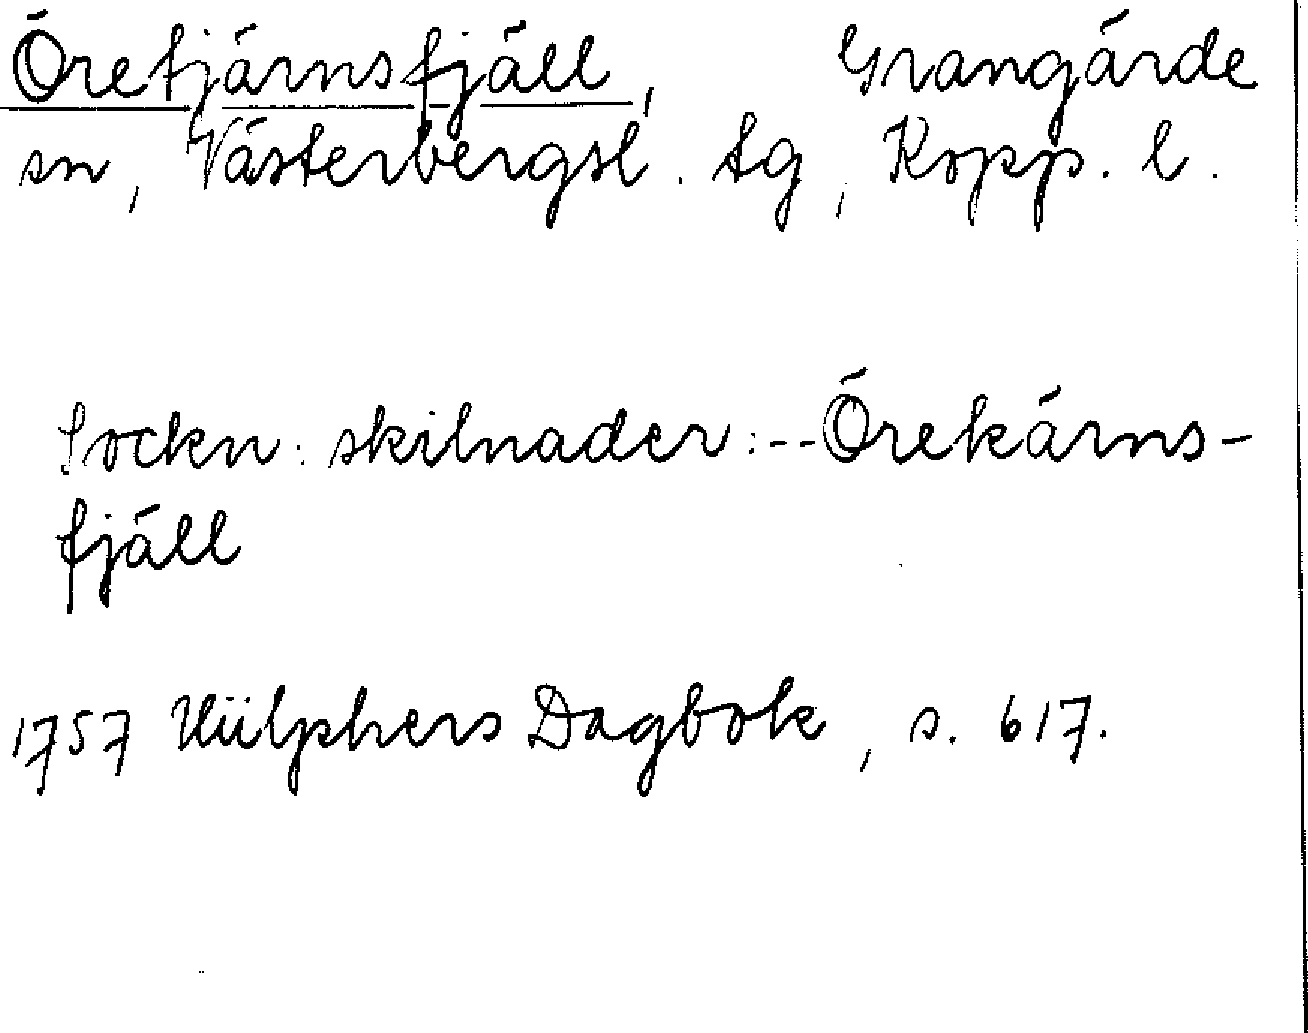 Öretjärnsfjäll, Grangärde
sn, Västerbergsl. tg, Kopp. l.
Sockn: skilnader: -- Örekärns-
fjäll
1757 Hülphers Dagbok, s. 617.